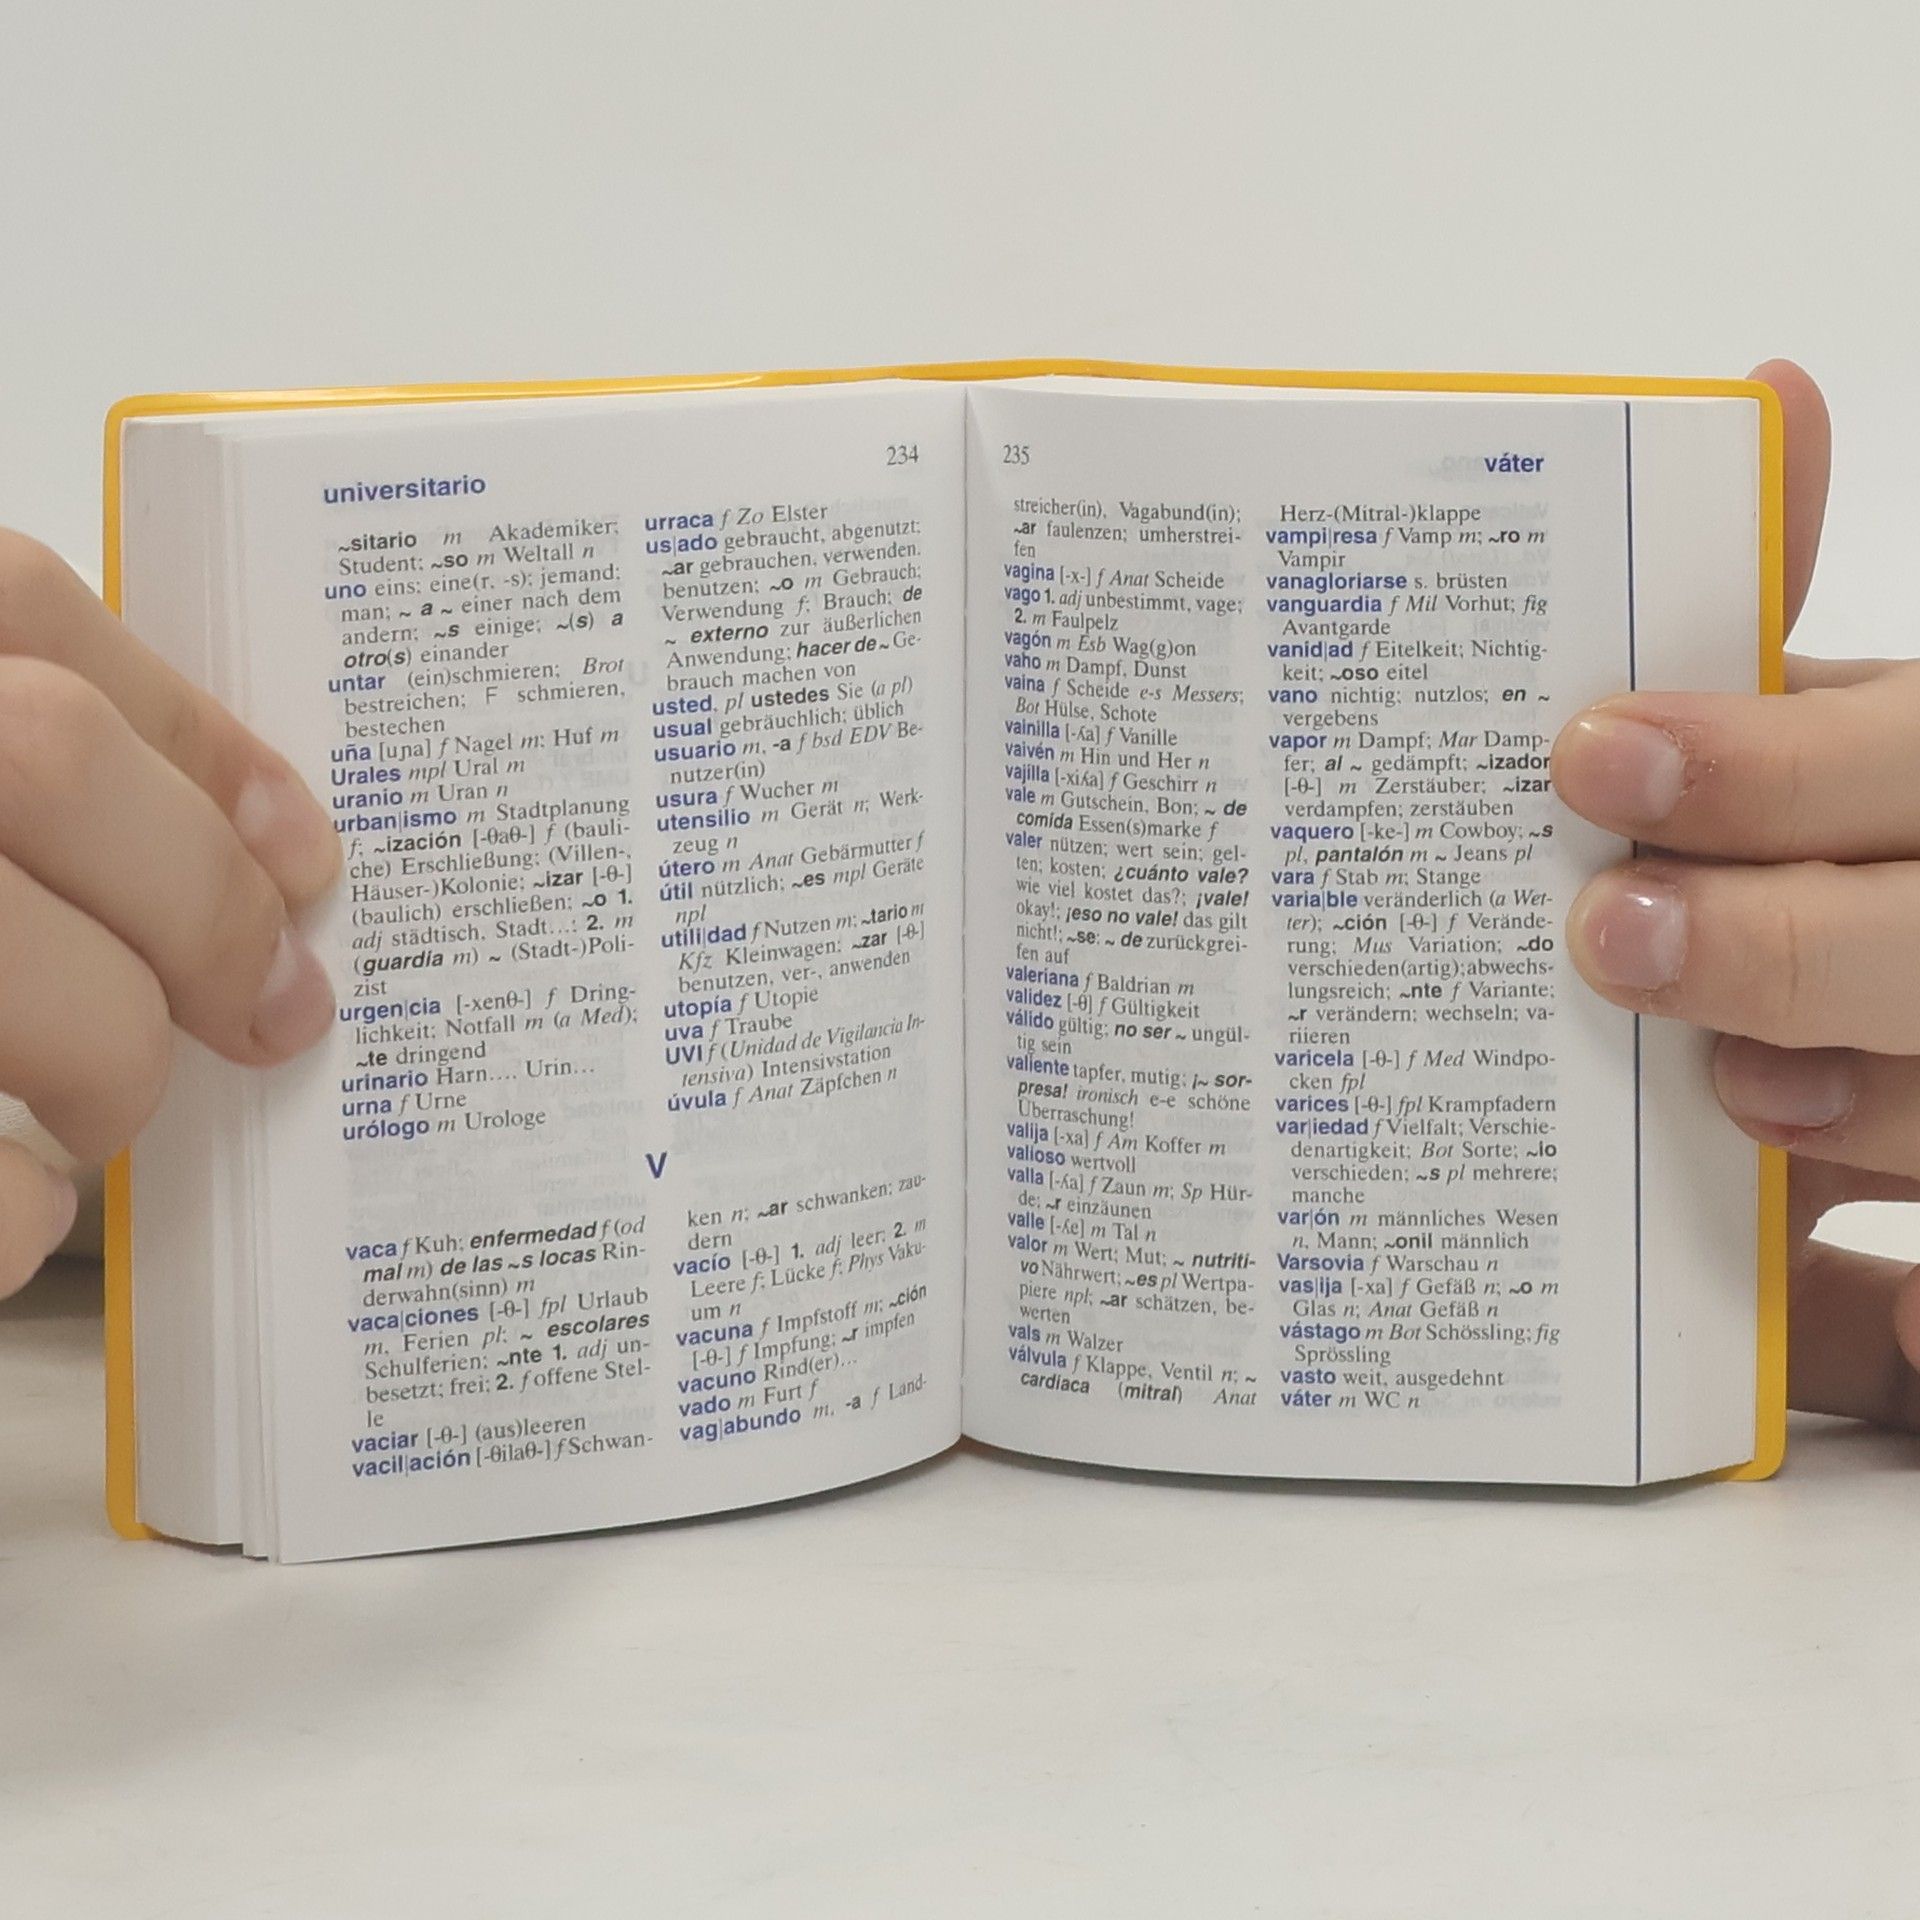 universitario
234
~sitario m Akademiker;
Student; ~so m Weltall n
uno eins; eine(r, -s); jemand;
man; ~ a ~ einer nach dem
andern; ~s einige; ~(s) a
otro(s) einander
untar (ein)schmieren; Brot
bestreichen; F schmieren,
bestechen
uña [uɲa] f Nagel m; Huf m
Urales mpl Ural m
uranio m Uran n
urban|ismo m Stadtplanung
f; ~ización [-θaθ-] f (bauli-
che) Erschließung; (Villen-,
Häuser-)Kolonie; ~izar [-θ-]
(baulich) erschließen; ~o 1.
adj städtisch, Stadt...; 2. m
(guardia m) ~ (Stadt-)Poli-
zist
urgen|cia [-xenθ-] f Dring-
lichkeit; Notfall m (a Med);
~te dringend
urinario Harn..., Urin...
urna f Urne
urólogo m Urologe
urraca f Zo Elster
us|ado gebraucht, abgenutzt;
~ar gebrauchen, verwenden,
benutzen; ~o m Gebrauch;
Verwendung f; Brauch; de
~ externo zur äußerlichen
Anwendung; hacer de ~ Ge-
brauch machen von
usted, pl ustedes Sie (a pl)
usual gebräuchlich; üblich
usuario m, -a f bsd EDV Be-
nutzer(in)
usura f Wucher m
utensilio m Gerät n; Werk-
zeug n
útero m Anat Gebärmutter f
útil nützlich; ~es mpl Geräte
npl
utili|dad f Nutzen m; ~tario m
Kfz Kleinwagen; ~zar [-θ-]
benutzen, ver-, anwenden
utopía f Utopie
uva f Traube
UVI f (Unidad de Vigilancia In-
tensiva) Intensivstation
úvula f Anat Zäpfchen n
V
vaca f Kuh; enfermedad f (od
mal m) de las ~s locas Rin-
derwahn(sinn) m
vaca|ciones [-θ-] fpl Urlaub
m, Ferien pl; ~ escolares
Schulferien; ~nte 1. adj un-
besetzt; frei; 2. f offene Stel-
le
vaciar [-θ-] (aus)leeren
vacil|ación [-θilaθ-] f Schwan-
ken n; ~ar schwanken; zau-
dern
vacío [-θ-] 1. adj leer; 2. m
Leere f; Lücke f; Phys Vaku-
um n
vacuna f Impfstoff m; ~ción
[-θ-] f Impfung; ~r impfen
vacuno Rind(er)...
vado m Furt f
vag|abundo m, -a f Land-
235
váter
streicher(in), Vagabund(in);
~ar faulenzen; umherstrei-
fen
vagina [-x-] f Anat Scheide
vago 1. adj unbestimmt, vage;
2. m Faulpelz
vagón m Esb Wag(g)on
vaho m Dampf, Dunst
vaina f Scheide e-s Messers;
Bot Hülse, Schote
vainilla [-ʎa] f Vanille
vaivén m Hin und Her n
vajilla [-xiʎa] f Geschirr n
vale m Gutschein, Bon; ~ de
comida Essen(s)marke f
valer nützen; wert sein; gel-
ten; kosten; ¿cuánto vale?
wie viel kostet das?; ¡vale!
okay!; ¡eso no vale! das gilt
nicht!; ~se: ~ de zurückgrei-
fen auf
valeriana f Baldrian m
validez [-θ] f Gültigkeit
válido gültig; no ser ~ ungül-
tig sein
valiente tapfer, mutig; ¡~ sor-
presa! ironisch e-e schöne
Überraschung!
valija [-xa] f Am Koffer m
valioso wertvoll
valla [-ʎa] f Zaun m; Sp Hür-
de; ~r einzäunen
valle [-ʎe] m Tal n
valor m Wert; Mut; ~ nutriti-
vo Nährwert; ~es pl Wertpa-
piere npl; ~ar schätzen, be-
werten
vals m Walzer
válvula f Klappe, Ventil n; ~
cardiaca (mitral) Anat
Herz-(Mitral-)klappe
vampi|resa f Vamp m; ~ro m
Vampir
vanagloriarse s. brüsten
vanguardia f Mil Vorhut; fig
Avantgarde
vanid|ad f Eitelkeit; Nichtig-
keit; ~oso eitel
vano nichtig; nutzlos; en ~
vergebens
vapor m Dampf; Mar Damp-
fer; al ~ gedämpft; ~izador
[-θ-] m Zerstäuber; ~izar
verdampfen; zerstäuben
vaquero [-ke-] m Cowboy; ~s
pl, pantalón m ~ Jeans pl
vara f Stab m; Stange
varia|ble veränderlich (a Wet-
ter); ~ción [-θ-] f Verände-
rung; Mus Variation; ~do
verschieden(artig);abwechs-
lungsreich; ~nte f Variante;
~r verändern; wechseln; va-
riieren
varicela [-θ-] f Med Windpo-
cken fpl
varices [-θ-] fpl Krampfadern
var|iedad f Vielfalt; Verschie-
denartigkeit; Bot Sorte; ~io
verschieden; ~s pl mehrere;
manche
var|ón m männliches Wesen
n, Mann; ~onil männlich
Varsovia f Warschau n
vas|ija [-xa] f Gefäß n; ~o m
Glas n; Anat Gefäß n
vástago m Bot Schössling; fig
Sprössling
vasto weit, ausgedehnt
váter m WC n